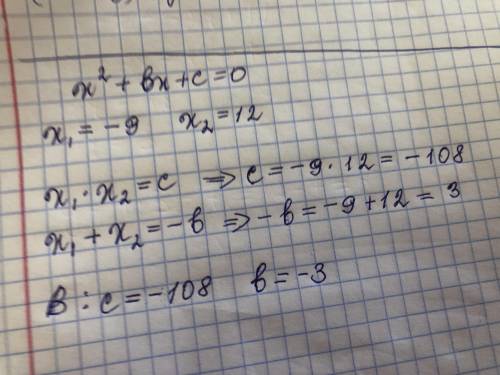 x² + bx + c = 0
x₁ = -9 x₂ = 12
x₁ · x₂ = c ⇒ c = -9 · 12 = -108
x₁ + x₂ = -b ⇒ -b = -9 + 12 = 3
B : c = -108 b = -3